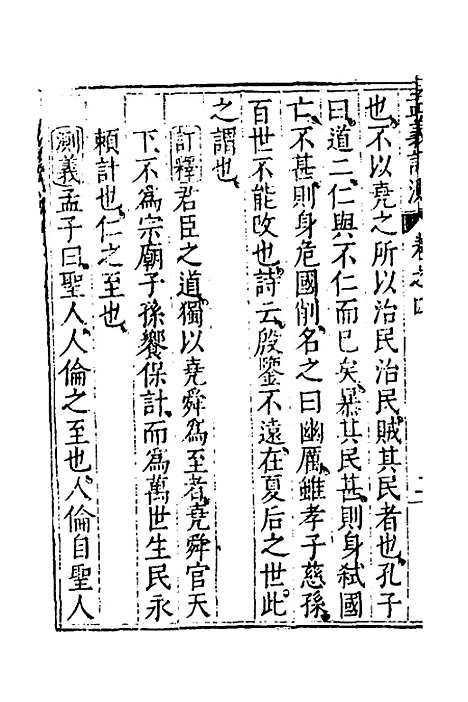 孟義訂測 卷之四 二
也不以堯之所以治民治民賊其民者也孔子
曰道二仁與不仁而已矣暴其民甚則身弒國
亡不甚則身危國削名之曰幽厲雖孝子慈孫
百世不能改也詩云殷鑒不遠在夏后之世此
之謂也
訂釋君臣之道獨以堯舜爲至者堯舜官天
下不爲宗廟子孫饗保計而爲萬世生民永
賴計也仁之至也
測義孟子曰聖人人倫之至也人倫自聖人